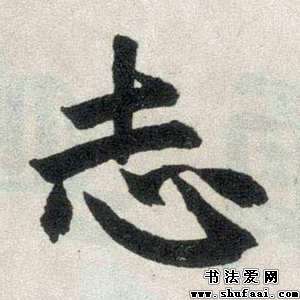 志
书法爱网
www.shufaai.com